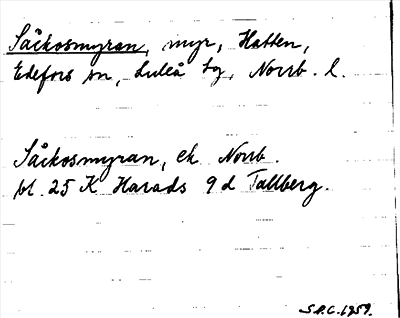 Såckosmyran, myr, Hatten,
Edefors sn, Luleå tg, Norrb. l.
Såckosmyran, ek Norrb.
bl. 25 K Harads 9 d Tallberg.
S.P.C. 1959.